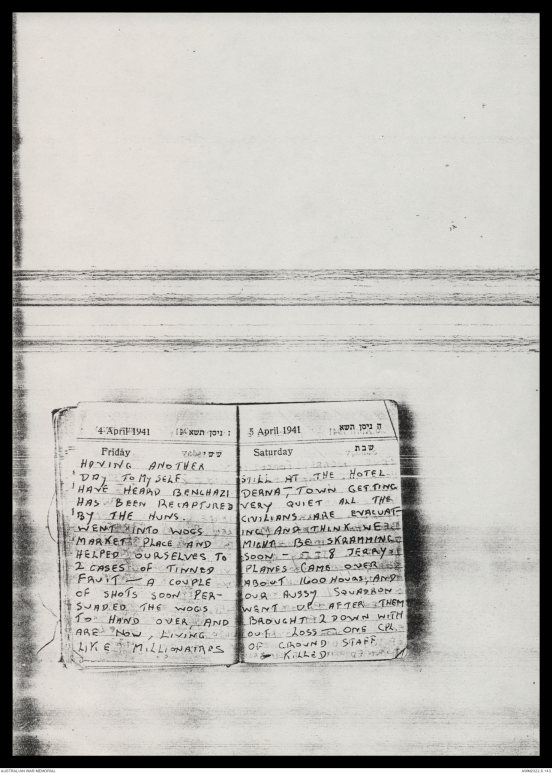 4 April 1941
ו ניסן תשא
Friday
ששי
HAVING ANOTHER
DAY TO MYSELF
HAVE HEARD BENGHAZI
HAS BEEN RECAPTURED
BY THE HUNS.
WENT INTO WOGS
MARKET PLACE AND
HELPED OURSELVES TO
2 CASES OF TINNED
FRUIT — A COUPLE
OF SHOTS SOON PER-
SUADED THE WOGS
TO HAND OVER, AND
ARE NOW, LIVING
LIKE MILLIONAIRES
5 April 1941
ח ניסן תשא
Saturday
שבת
STILL AT THE HOTEL
DERNA — TOWN GETTING
VERY QUIET ALL THE
CIVILIANS ARE EVACUAT-
ING AND THINK WE
MIGHT BE SKRAMMING
SOON — 8 JERRY
PLANES CAME OVER
ABOUT 1600 HOURS, AND
OUR AUSSY SQUADRON
WENT UP AFTER THEM
BROUGHT 2 DOWN WITH
OUT LOSS — ONE CPL.
OF GROUND STAFF
KILLED
AUSTRALIAN WAR MEMORIAL